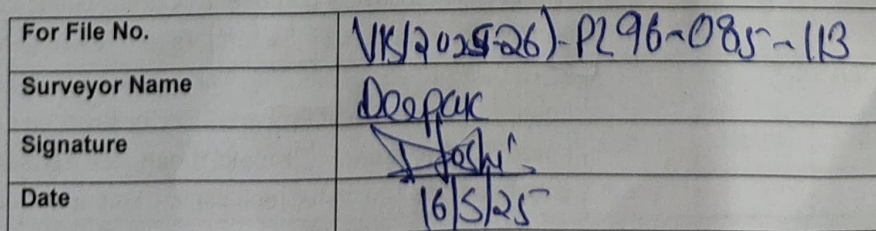 For File No. VIS(2025-26)-PL96-085-113
Surveyor Name Deepak
Signature DJoshi
Date 16/5/25